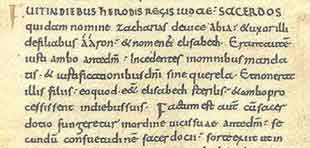 FUIT IN DIEBUS hERODIS REGIS IUDAEAE SACERDOS
quidam nomine zacharias de uice abia · & uxor illi
de filiabus aaron · & nomen ei elisabeth · Erant autem
iusti ambo ante dm̄ · Incedentes in omnibus manda
tis · & iustificationibus dn̄i sine querela · Et non erat
illis filius · eo quod ess& elisabeth sterilis · & ambo pro
cessissent in diebus suis · Factum est autē cū sacer
dotio fungeretur in ordine uicis suae ante dm̄ · se
cundū consuetudinē sacerdotii · sorte exiit ut in